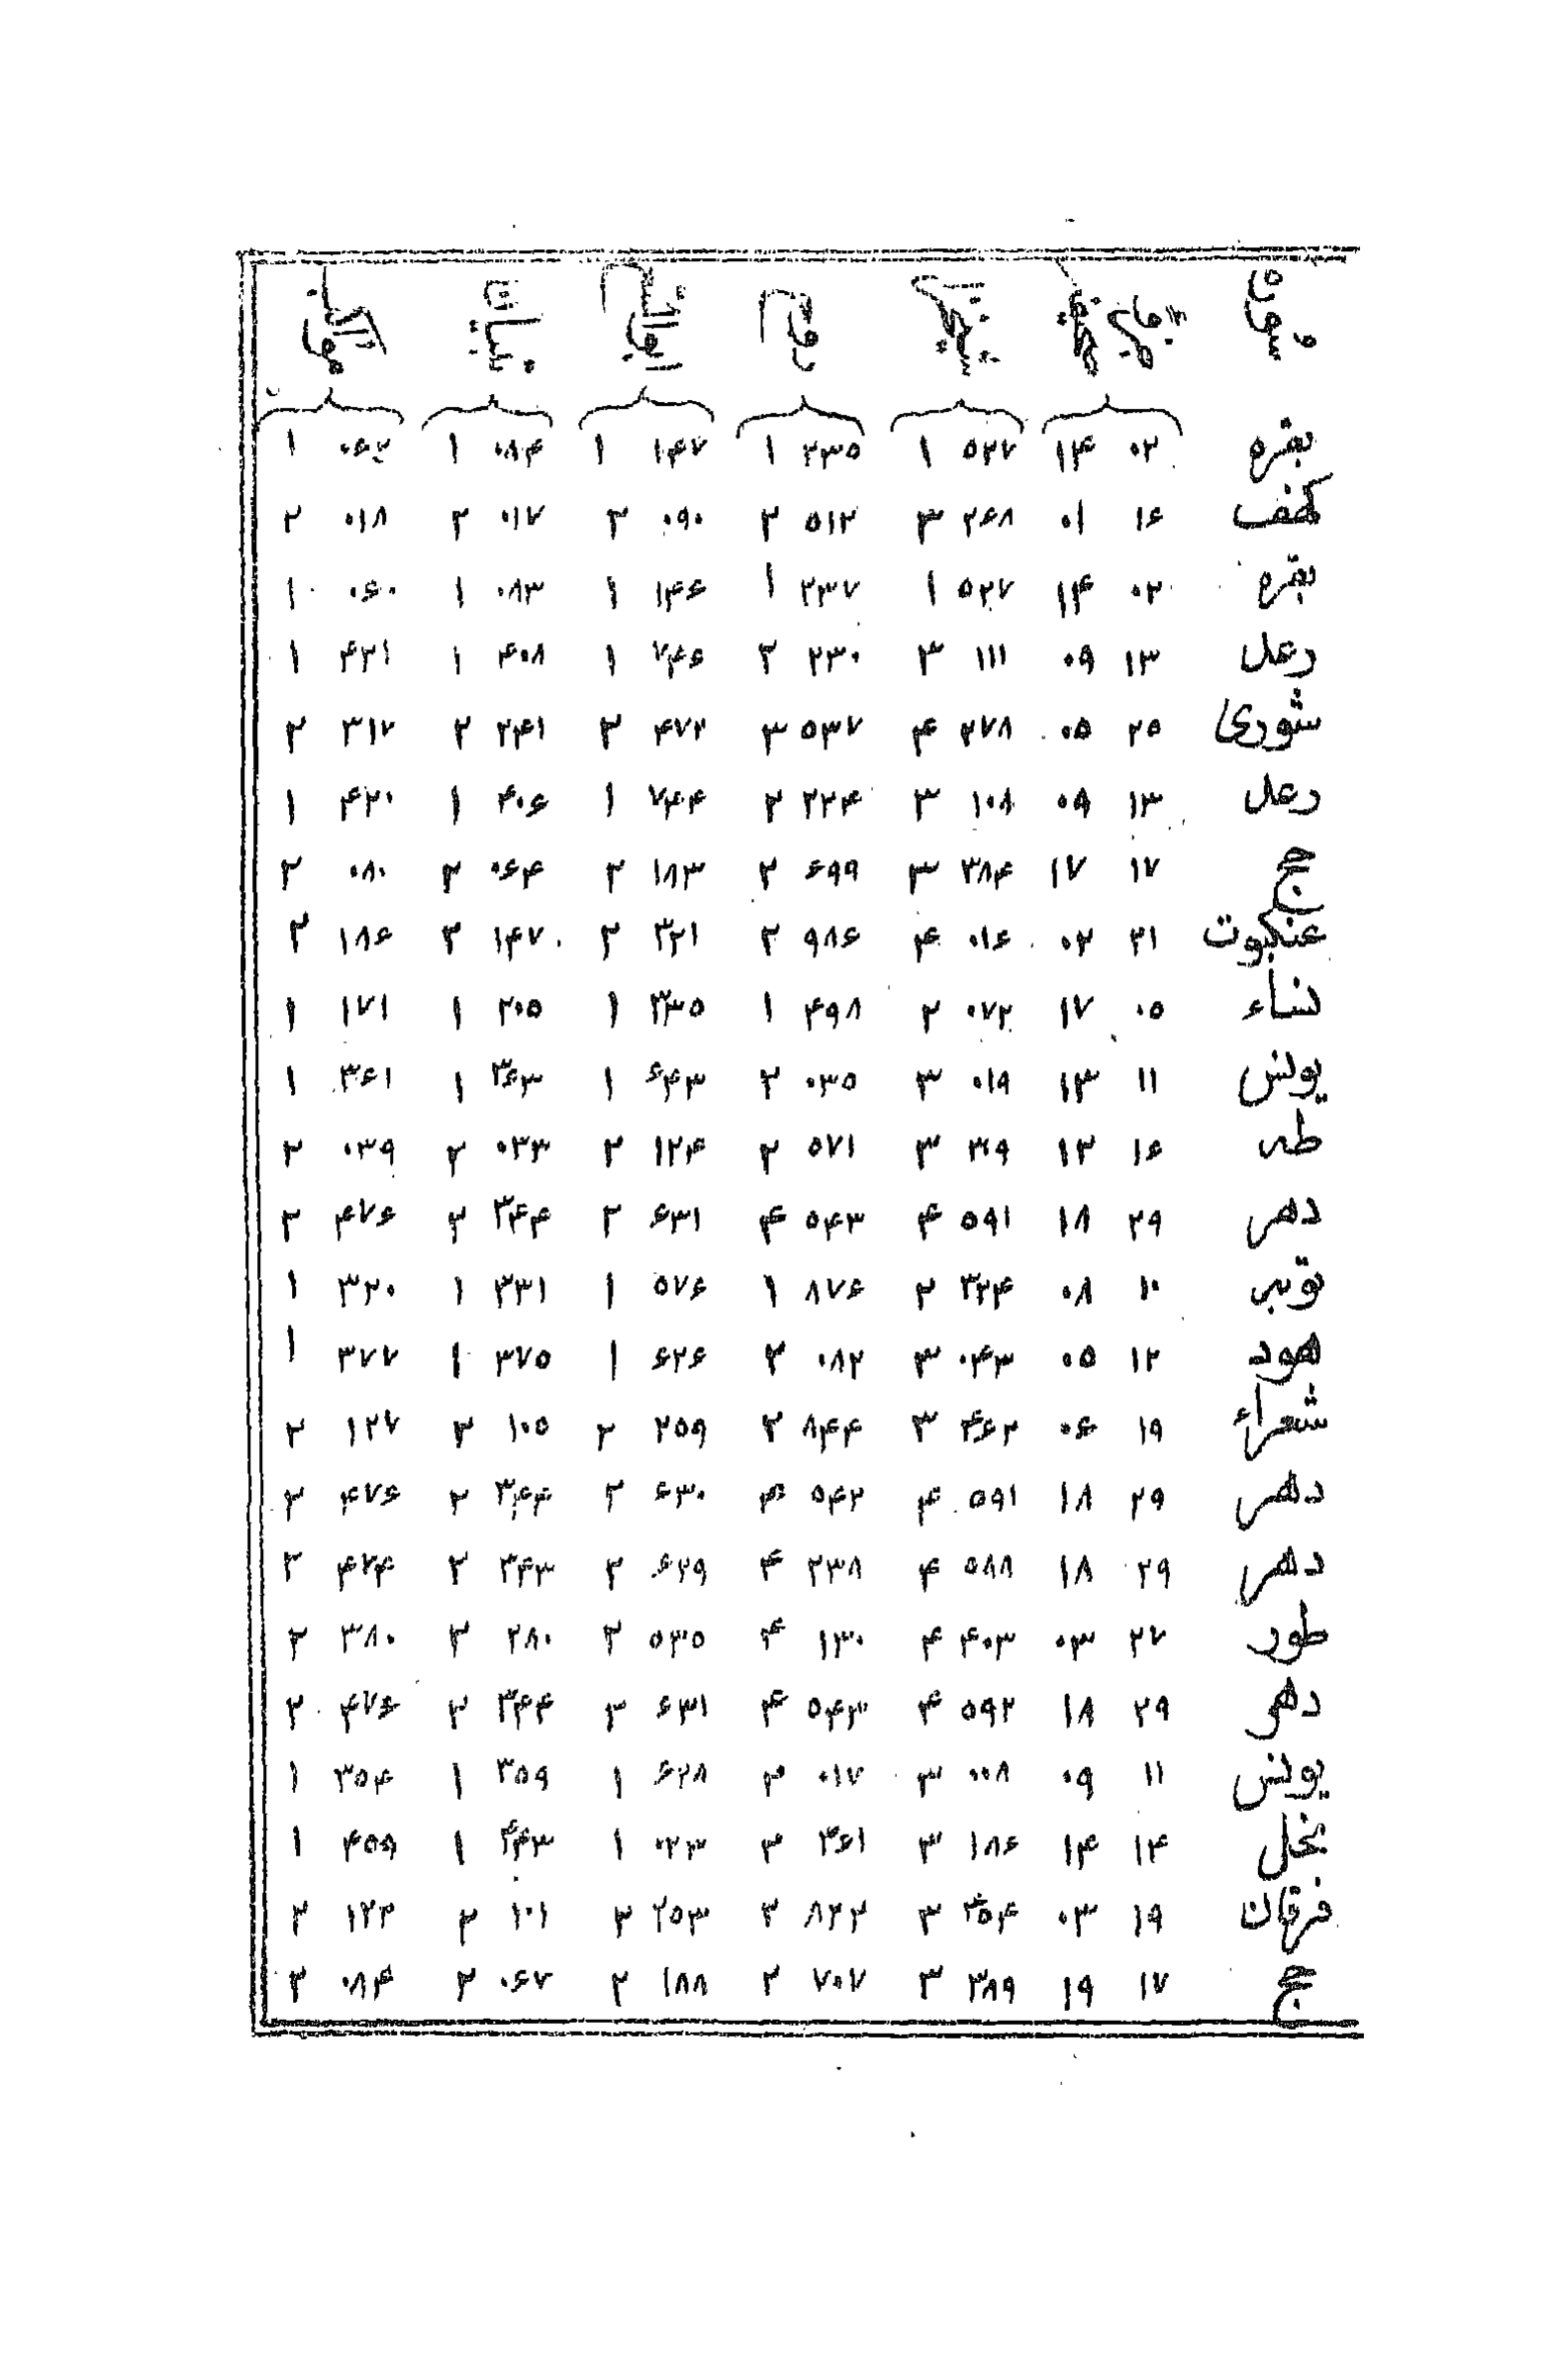 بقره ۰۲ ۱۴ ۵۲۷ ۱ ۲۳۵ ۱ ۱۴۷ ۱ ۰۸۴ ۱ ۰۶۲ ۱
کهف ۱۶ ۰۱ ۲۶۸ ۳ ۵۱۲ ۲ ۰۹۰ ۲ ۰۱۷ ۲ ۰۱۸ ۲
بقره ۰۲ ۱۴ ۵۲۷ ۱ ۲۳۷ ۱ ۱۴۶ ۱ ۰۸۳ ۱ ۰۶۰ ۱
رعد ۱۳ ۰۹ ۱۱۱ ۳ ۲۳۰ ۲ ۷۴۶ ۱ ۴۰۸ ۱ ۴۲۱ ۱
شوری ۲۵ ۰۵ ۲۷۸ ۴ ۵۳۷ ۳ ۴۷۲ ۲ ۲۴۱ ۲ ۳۱۷ ۲
رعد ۱۳ ۰۹ ۱۰۸ ۳ ۲۲۴ ۲ ۷۴۴ ۱ ۴۰۶ ۱ ۴۲۰ ۱
حج ۱۷ ۱۷ ۳۸۴ ۳ ۶۹۹ ۲ ۱۸۳ ۲ ۰۶۴ ۲ ۰۸۰ ۲
عنکبوت ۲۱ ۰۲ ۰۱۶ ۴ ۹۸۶ ۲ ۳۲۱ ۲ ۱۴۷ ۲ ۱۸۶ ۲
نساء ۰۵ ۱۷ ۰۷۲ ۲ ۴۹۸ ۱ ۳۳۵ ۱ ۲۰۵ ۱ ۱۷۱ ۱
یونس ۱۱ ۱۳ ۰۱۹ ۳ ۰۳۵ ۲ ۶۴۳ ۱ ۳۶۳ ۱ ۳۶۱ ۱
طه ۱۶ ۱۲ ۳۱۹ ۳ ۵۷۱ ۲ ۱۲۴ ۲ ۰۳۳ ۲ ۰۳۹ ۲
دهر ۲۹ ۱۸ ۵۹۱ ۴ ۵۴۳ ۴ ۶۳۱ ۲ ۳۴۴ ۲ ۴۷۶ ۲
توبه ۱۰ ۰۸ ۳۲۴ ۲ ۸۷۶ ۱ ۵۷۶ ۱ ۳۳۱ ۱ ۳۲۰ ۱
هود ۱۲ ۰۵ ۰۴۳ ۳ ۰۸۲ ۲ ۶۲۶ ۱ ۳۷۵ ۱ ۳۷۷ ۱
شعراء ۱۹ ۰۶ ۴۶۲ ۳ ۸۴۴ ۲ ۲۵۹ ۲ ۱۰۵ ۲ ۱۲۷ ۲
دهر ۲۹ ۱۸ ۵۹۱ ۴ ۵۴۲ ۴ ۶۳۰ ۲ ۳۴۴ ۲ ۴۷۶ ۲
دهر ۲۹ ۱۸ ۵۸۸ ۴ ۲۳۸ ۴ ۶۲۹ ۲ ۳۴۳ ۲ ۴۷۴ ۲
طور ۲۷ ۰۳ ۴۰۳ ۴ ۱۳۰ ۴ ۵۳۵ ۲ ۲۸۰ ۲ ۳۸۰ ۲
دهر ۲۹ ۱۸ ۵۹۲ ۴ ۵۴۳ ۴ ۶۳۱ ۲ ۳۴۴ ۲ ۴۷۶ ۲
یونس ۱۱ ۰۹ ۰۰۸ ۳ ۰۱۷ ۲ ۶۲۸ ۱ ۳۵۹ ۱ ۳۵۴ ۱
نحل ۱۴ ۱۴ ۱۸۶ ۳ ۳۶۱ ۲ ۰۲۳ ۱ ۴۴۳ ۱ ۴۵۹ ۱
فرقان ۱۹ ۰۳ ۴۵۴ ۳ ۸۲۲ ۲ ۲۵۳ ۲ ۱۰۱ ۲ ۱۲۲ ۲
حج ۱۷ ۱۹ ۳۸۹ ۳ ۷۰۷ ۲ ۱۸۸ ۲ ۰۶۷ ۲ ۰۸۴ ۲